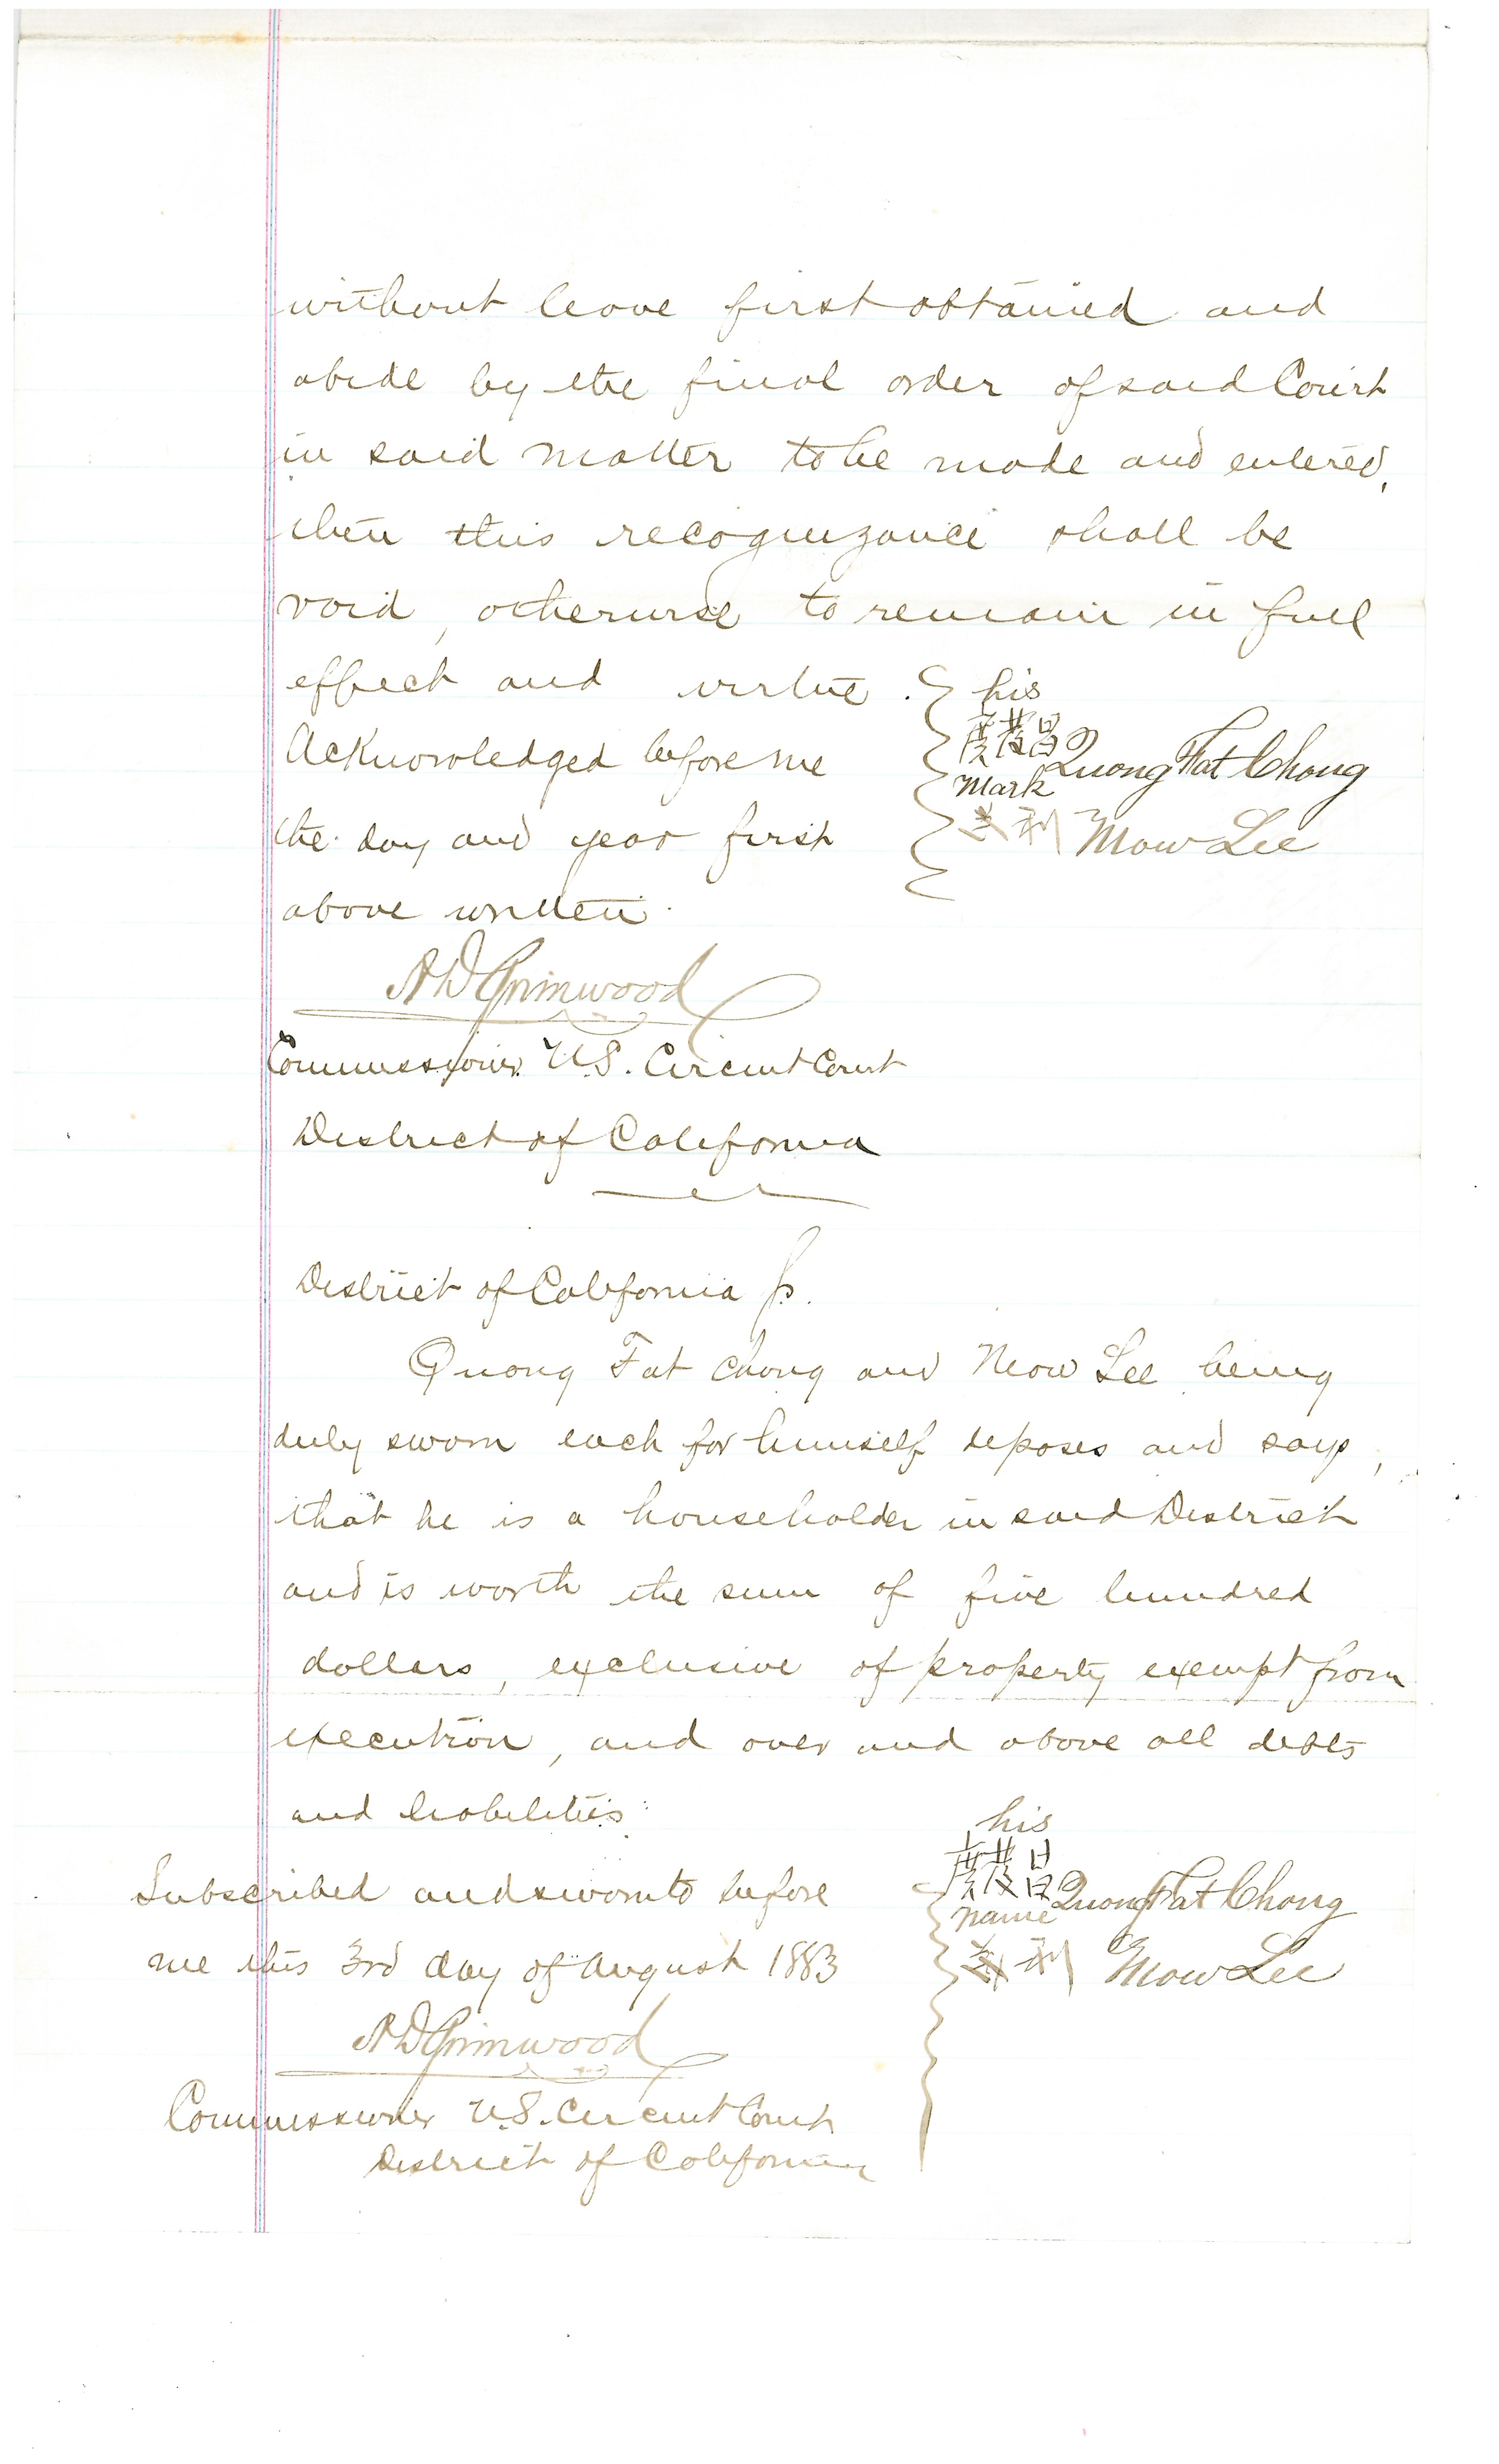 without leave first obtained and
abide by the final order of said Court
in said matter to be made and entered,
then this recognizance shall be
void, otherwise to remain in full
effect and virtue.
his
廣發昌 Quong Fat Chong
mark
Acknowledged before me
the day and year first
利 Mow Lee
above written.
A D Grimwood
Commissioner U.S. Circuit Court
District of California
District of California ss.
Quong Fat Chong and Mow Lee being
duly sworn each for himself deposes and says,
that he is a householder in said District
and is worth the sum of five hundred
dollars, exclusive of property exempt from
execution, and over and above all debts
and liabilities.
his
廣發昌 Quong Fat Chong
name
Subscribed and sworn to before
me this 3rd day of August 1883
利 Mow Lee
A D Grimwood
Commissioner U.S. Circuit Court
District of California